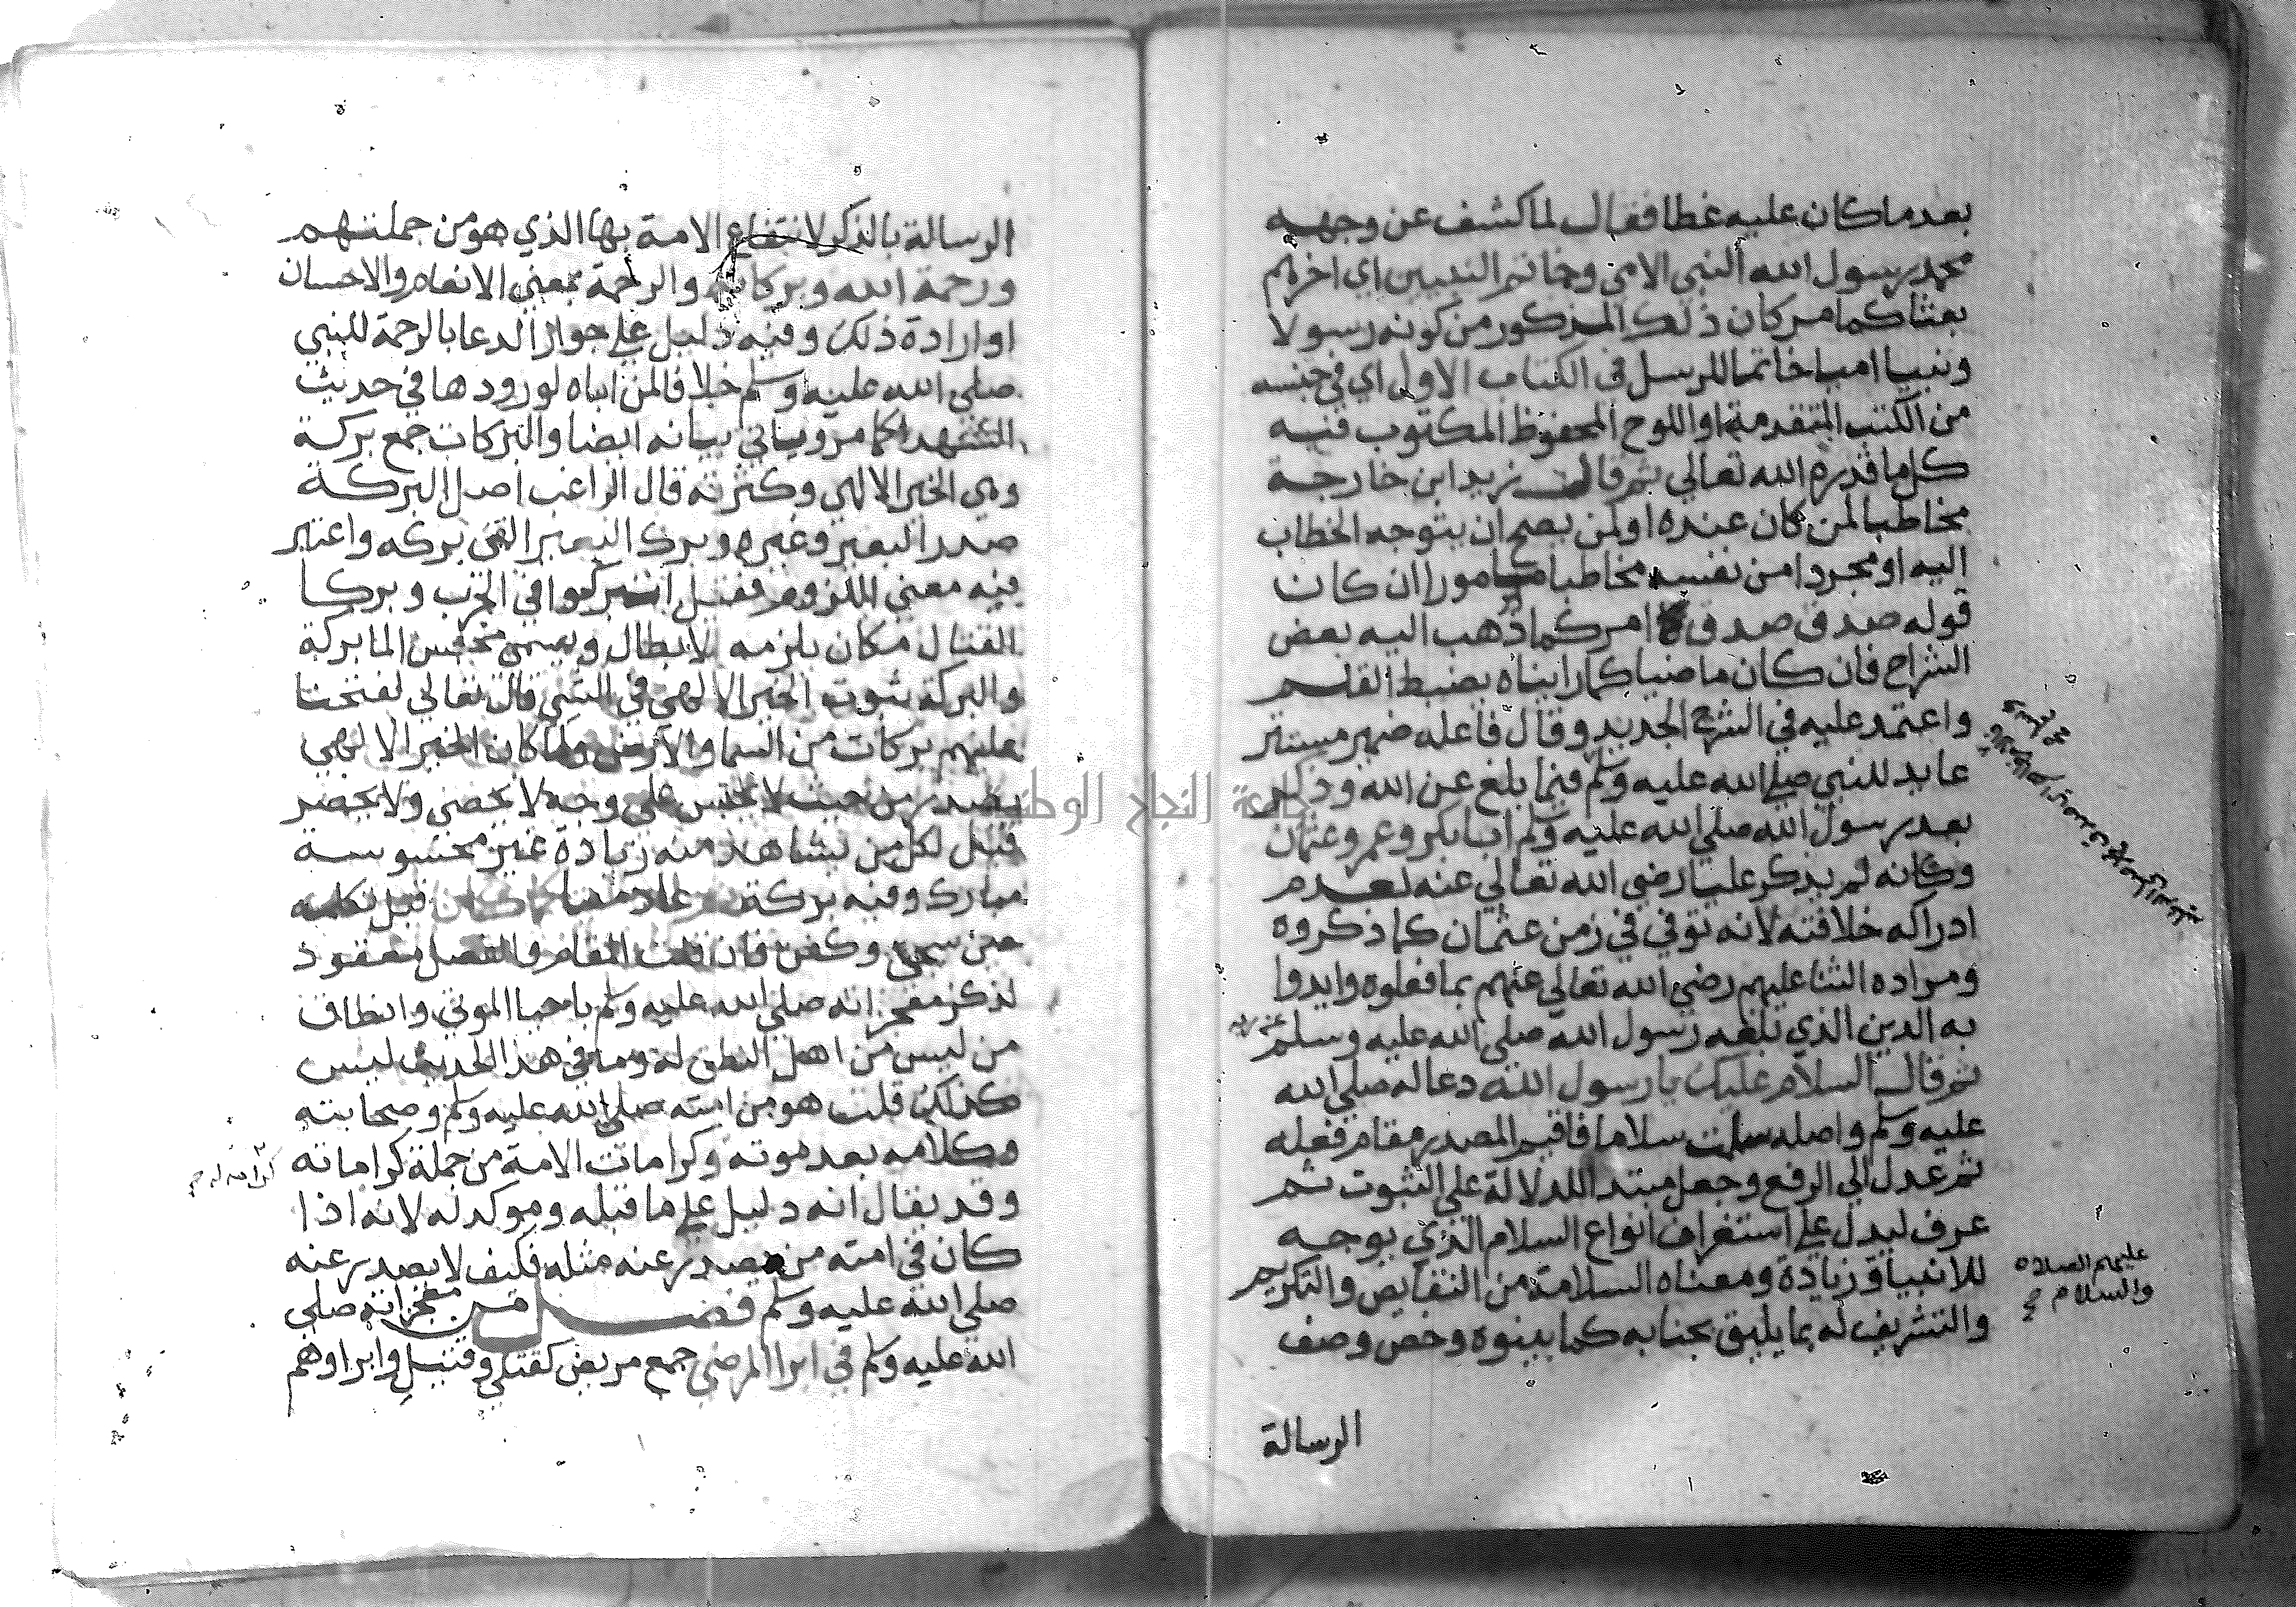 بعد ما كان عليه غطا فقال لما كشف عن وجهه
محمد رسول الله النبي الامي وخاتم النبيين اي اخرهم
بعثا كما مر كان ذلك المذكور من كونه رسولا
ونبيا اميا خاتما للرسل في الكتاب الاول اي في جنسه
من الكتب المتقدمة او اللوح المحفوظ المكتوب فيه
كل ما قدره الله تعالي ثم قال زيد ابن خارجة
مخاطبا لمن كان عنده او لمن يصح ان يتوجه الخطاب
اليه او مجردا من نفسه مخاطبا مامورا ان كان
قوله صدق صدق امر كما ذهب اليه بعض
الشراح فان كان ماضيا كما رايناه بضبط القلم
واعتمد عليه في الشرح الجديد وقال فاعله ضمير مستتر
عايد للنبي صلي الله عليه وسلم فيما بلغ عن الله وذكر
بعد رسول الله صلي الله عليه وسلم ابا بكر وعمر وعثمان
وكانه لم يذكر عليا رضي الله تعالي عنه لعدم
ادراكه خلافته لانه توفي في زمن عثمان كما ذكروه
ومراده الثنا عليهم رضي الله تعالي عنهم بما فعلوه وايدوا
به الدين الذي بلغه رسول الله صلي الله عليه وسلم
ثم قال السلام عليك يا رسول الله دعا له صلي الله
عليه وسلم واصله سلمت سلاما فاقيم المصدر مقام فعله
ثم عدل الي الرفع وجعل مبتدا للدلالة علي الثبوت ثم
عرف ليدل علي استغراق انواع السلام الذي يوجه
للانبيا وزيادة ومعناه السلامة من النقايص والتكريم
عليهم الصلاة
والسلام
والتشريف له بما يليق بجنابه كما بينوه وخص وصف
الرسالة
الرسالة بالذكر لانتفاع الامة بها الذي هو من جملتهم
ورحمة الله وبركاته والرحمة بمعني الانعام والاحسان
او ارادة ذلك وفيه دليل علي جواز الدعا بالرحمة للنبي
صلي الله عليه وسلم خلافا لمن اباه لورودها في حديث
التشهد كما مر وياتي بيانه ايضا والبركات جمع بركة
وهي الخير الالهي وكثرته قال الراغب اصل البركة
صدر البعير وغيره وبرك البعير القي بركه واعتبر
فيه معني اللزوم فقيل ابتركوا في الحرب وبركا
القتال مكان يلزمه الابطال وسمي محبس الما بركة
والبركة ثبوت الخير الالهي في الشي قال تعالي لفتحنا
عليهم بركات من السما والارض ولما كان الخير الالهي
يصدر من حيث لا يحس علي وجه لا يحصي ولا يحصر
قيل لكل من يشاهد منه زيادة غير محسوسة
مبارك وفيه بركة ثم عاد ميتا كما كان قبل تكلمه
حين سجي وكفن فان قلت المقام والفصل معقود
لذكر معجزاته صلي الله عليه وسلم باحيا الموتي وانطاق
من ليس من اهل النطق له وما في هذا الحديث ليس
كذلك قلت هو من امته صلي الله عليه وسلم وصحابته
وكلامه بعد موته وكرامات الامة من جملة كراماته
وقد يقال انه دليل علي ما قبله وموكد له لانه اذا
كان في امته من يصدر عنه مثله فكيف لا يصدر عنه
صلي الله عليه وسلم فصل من معجزاته صلي
الله عليه وسلم في ابرا المرضي جمع مريض كقتلي وقتيل وابراوهم